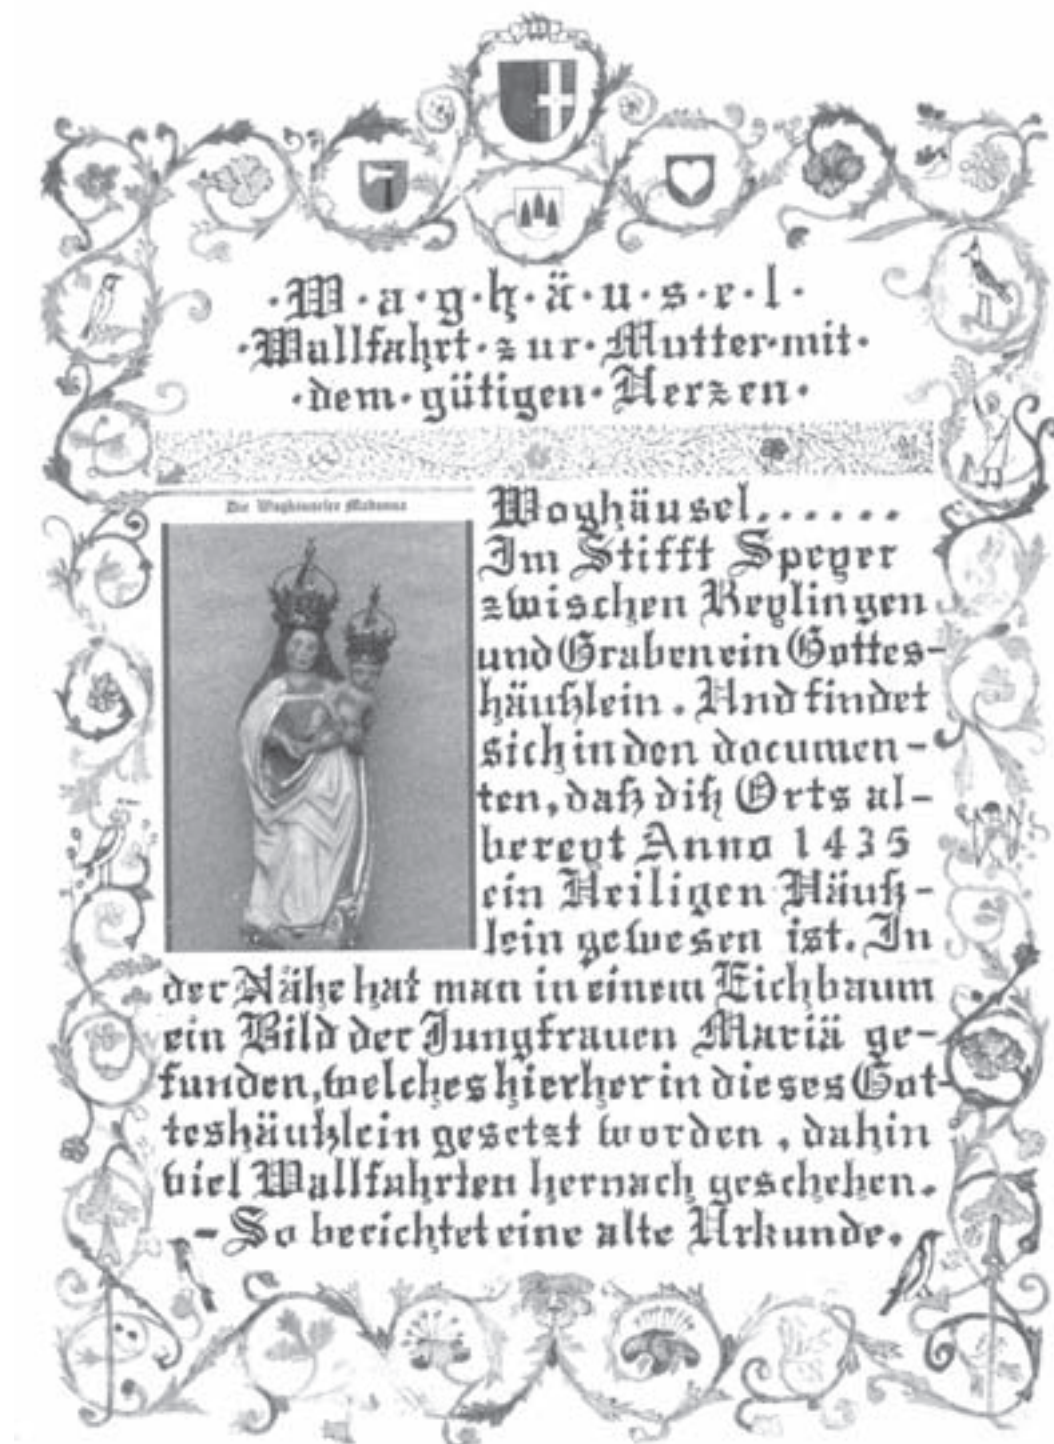 ·W·a·g·h·ä·u·s·e·l·
·Wallfahrt·zur·Mutter·mit·
·dem·gütigen·Herzen·
Die Waghäuseler Madonna
Woghäusel......
Im Stifft Speyer
zwischen Reylingen
und Graben ein Gottes-
häußlein. Und findet
sich in den documen-
ten, daß diß Orts al-
bereyt Anno 1435
ein Heiligen Häuß-
lein gewesen ist. In
der Nähe hat man in einem Eichbaum
ein Bild der Jungfrauen Mariä ge-
funden, welches hierher in dieses Got-
teshäußlein gesetzt worden, dahin
viel Wallfahrten hernach geschehen.
- So berichtet eine alte Urkunde.